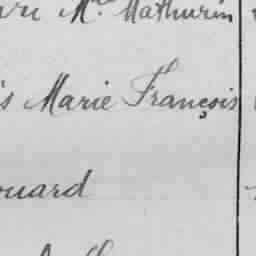 Mce Mathurin
s Marie François
ouard